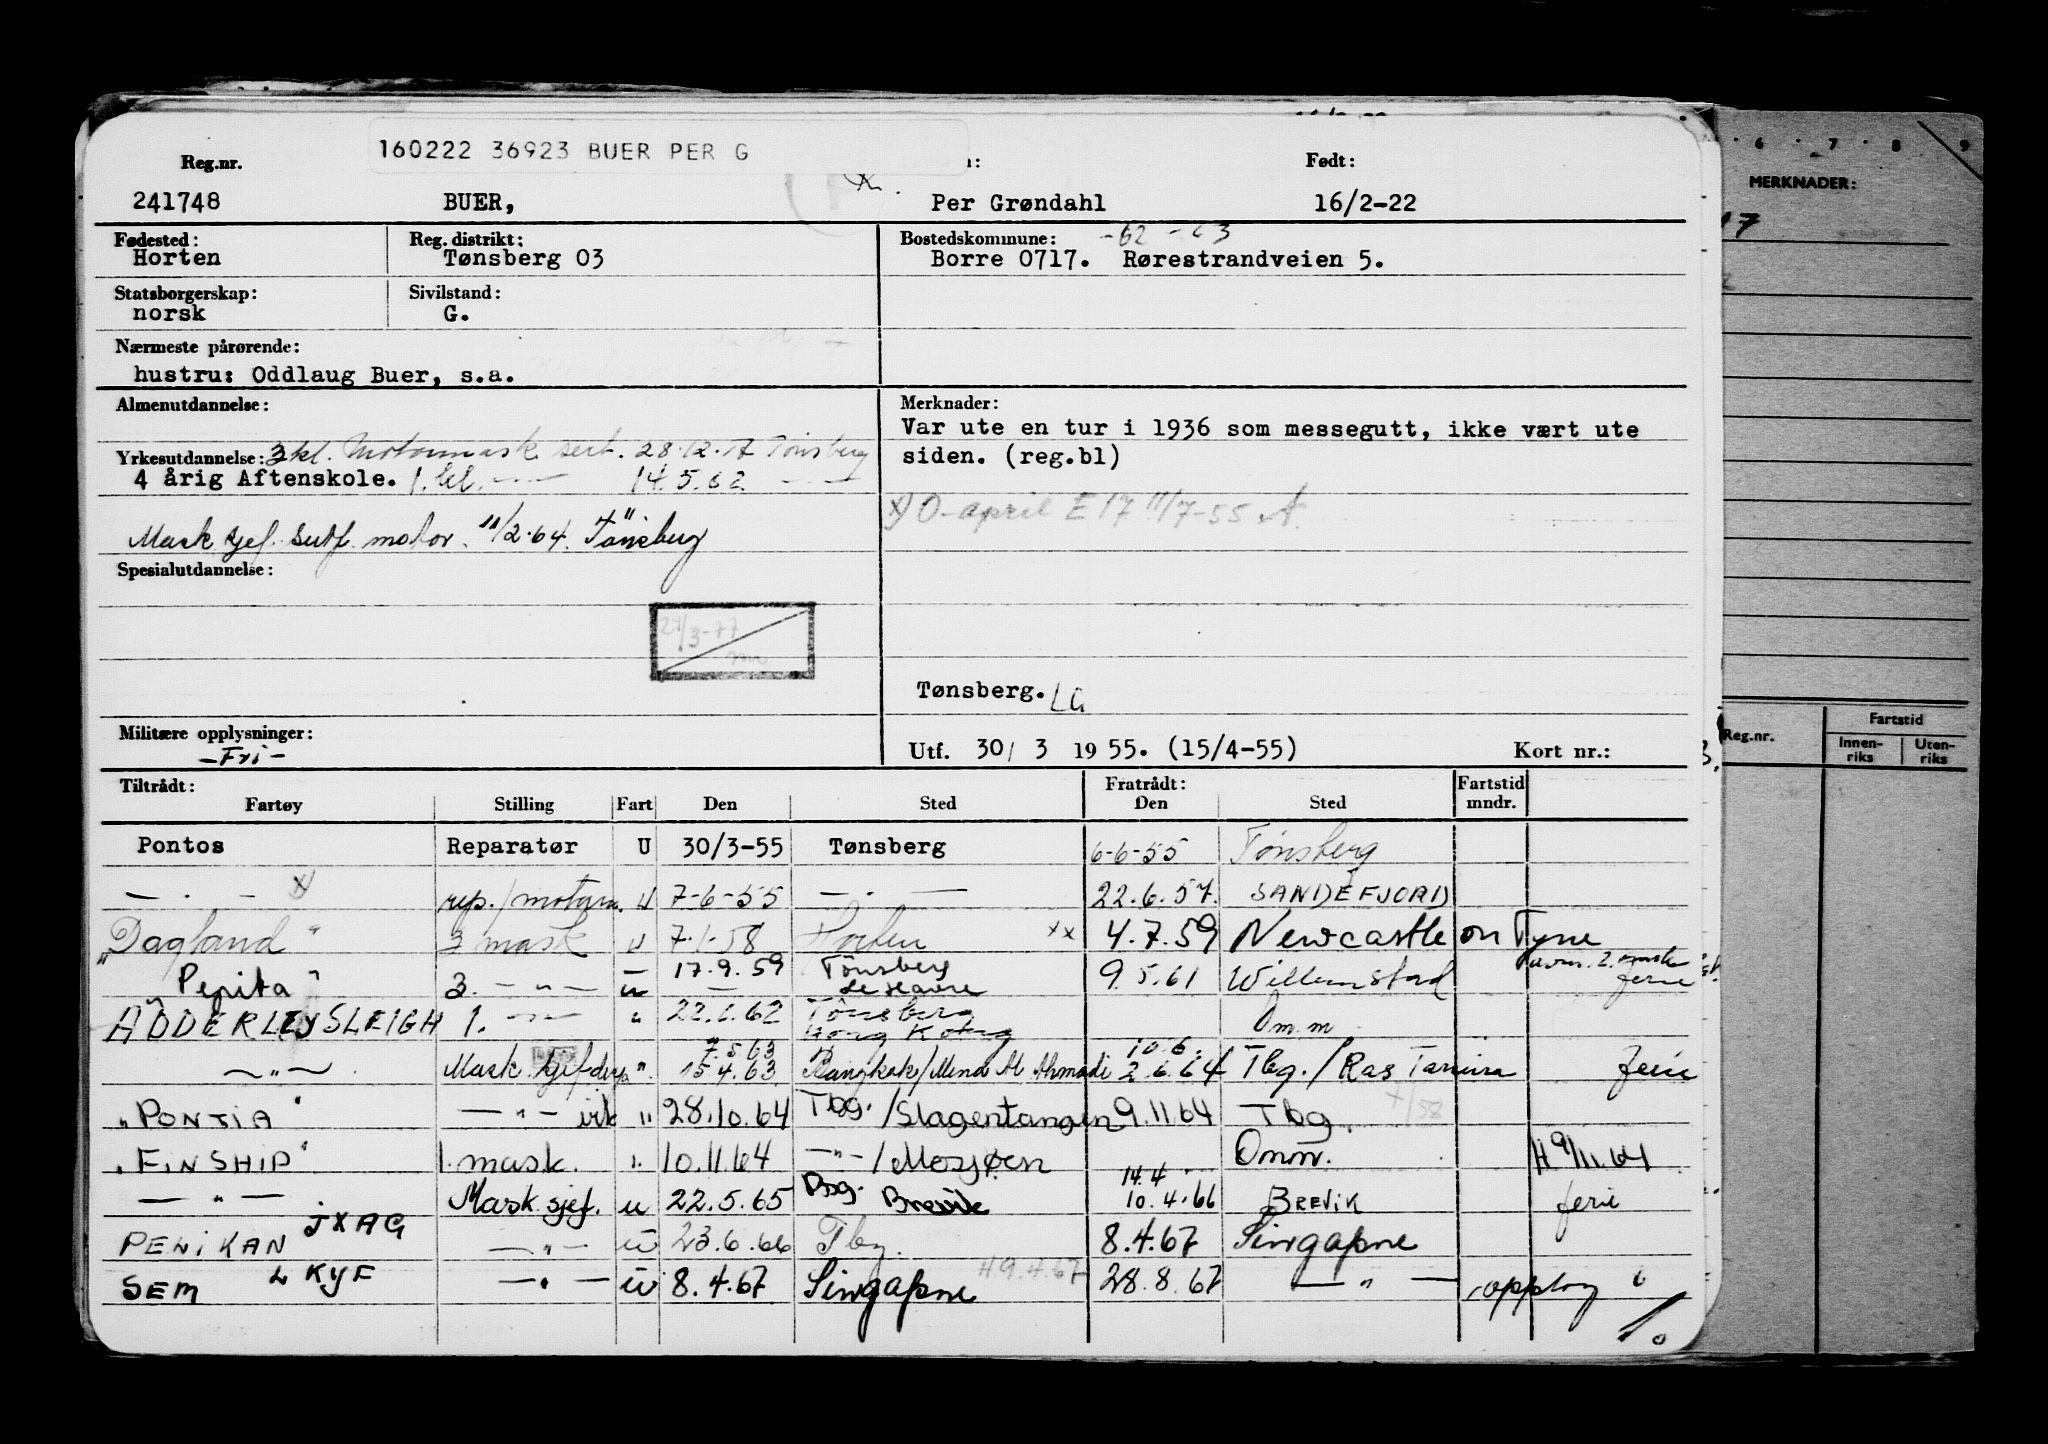 160222 36923 BUER PER G
Reg.nr. Født:
241748 BUER, Per Grøndahl 16/2-22
Fødested: Reg. distrikt: Bostedskommune: -62 -63
Horten Tønsberg 03 Borre 0717. Rørestrandveien 5.
Statsborgerskap: Sivilstand:
norsk G.
Nærmeste pårørende:
hustru: Oddlaug Buer, s.a.
Almenutdannelse: Merknader:
Var ute en tur i 1936 som messegutt, ikke vært ute
siden. (reg.bl)
Yrkesutdannelse: 3kl. Motormask sert. 28.12.57 Tönsberg
4 årig Aftenskole. 1. kl. — " — 14.5.62 — " —
x) O-april E 17 11/7-55 A.
Mask sjef. sertf. motor. 11/2-64. Tönsberg
Spesialutdannelse:
21/3-77
Tønsberg. LG
Militære opplysninger:
-Fri-
Utf. 30/ 3 1955. (15/4-55) Kort nr.:
Tiltrådt: Fratrådt: Fartstid
Fartøy Stilling Fart Den Sted Den Sted mndr.
Pontos Reparatør U 30/3-55 Tønsberg 6-6-55 Tønsberg
— . — x) rep./motorm. U 7-6-55 — . — 22.6.57. SANDEFJORD
"Dagland" 3 mask U 7.1.58 Horten xx 4.7.59 Newcastle on Tyne
"Pepita" 3. — " — u 17.9.59 Tönsberg Le Havre 9.5.61 Willemstad 2. mask ferie
ADDERLEYSLEIGH 1. — " — " 22.1.62 Tönsberg Hong Kong Om.m
— " — Mask. sjef ". 7.5.63 15.4.63 Bangkok/Mena Al Ahmadi 10.6. 2.6.64 Tbg./Ras Tanura ferie
"PONTIA" — " — vik " 28.10.64 Tbg./Slagentangen 9.11.64 Tbg.
"FINSHIP" 1. mask. ". 10.11.64 — " — /Mosjøen Omm. H 9/11.64
— " — Mask sjef. u 22.5.65 Bsg. Brevik 14.4 10.4.66 BREVIK ferie
PELIKAN JXAG — " — u 23.6.66 Tbg. 8.4.67 Singapore
SEM LKYF — " — u 8.4.67 Singapore H9.4.67 28.8.67 — " — opplag
MERKNADER:
Reg.nr. Fartstid
Innen-riks Uten-riks